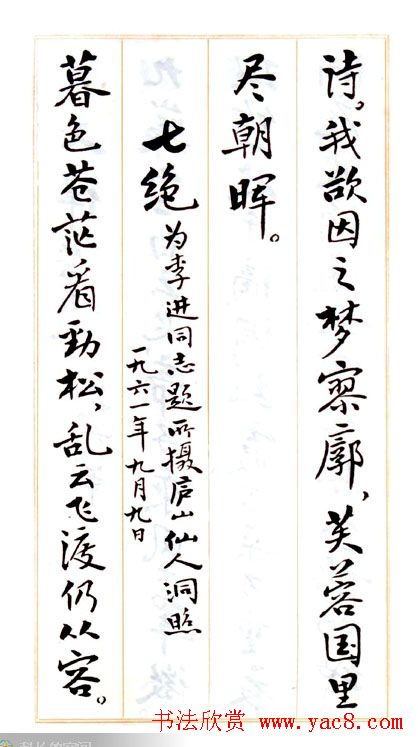 诗。我欲因之梦寥廓，芙蓉国里
尽朝晖。
七绝
为李进同志题所摄庐山仙人洞照
一九六一年九月九日
暮色苍茫看劲松，乱云飞渡仍从容。
书法欣赏 www.yac8.com